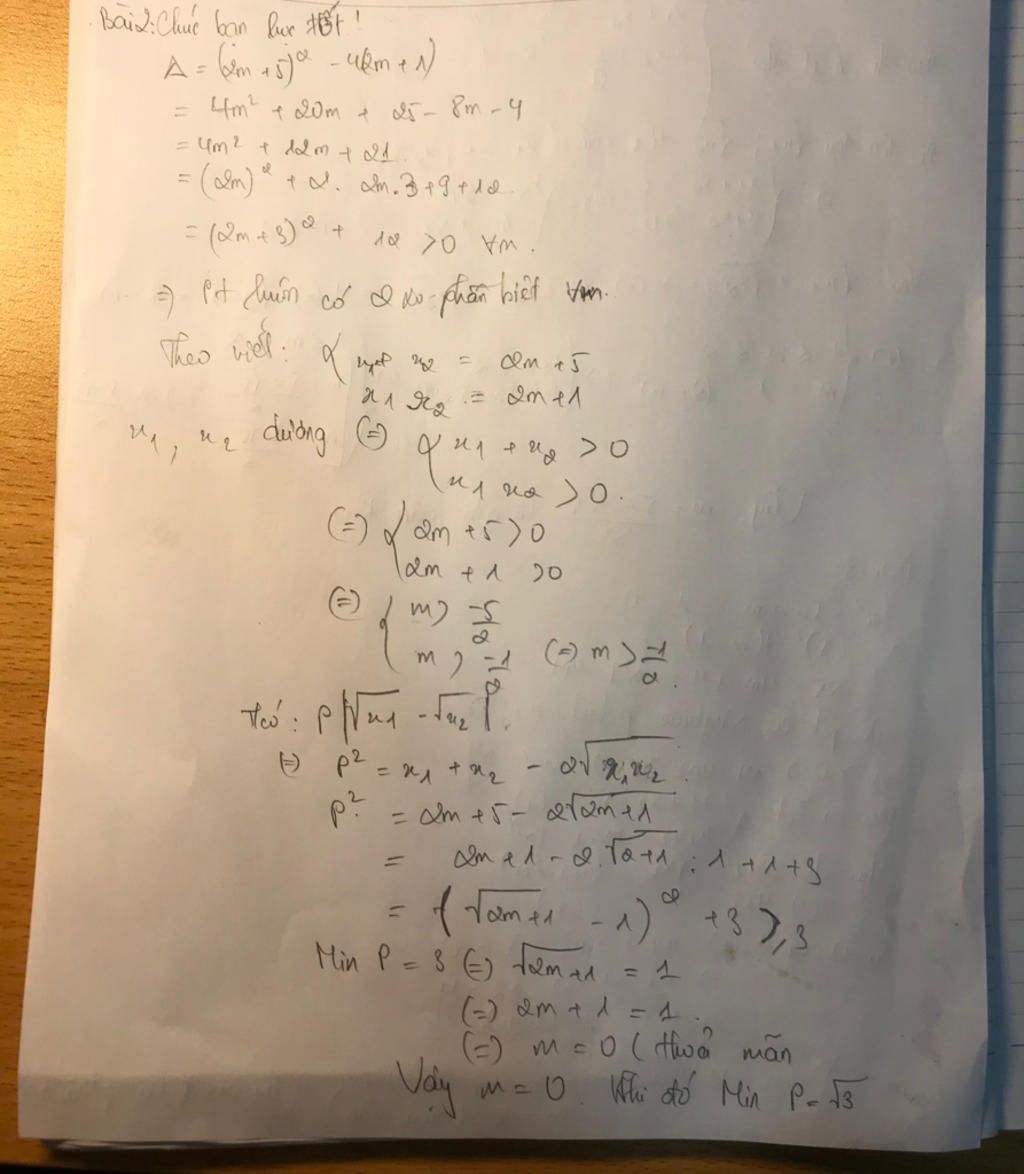 Bài 2: Chúc bạn học tốt!
Δ = (2m + 5)² - 4(2m + 1)
= 4m² + 20m + 25 - 8m - 4
= 4m² + 12m + 21
= (2m)² + 2. 2m.3 + 9 + 12
= (2m + 3)² + 12 > 0 ∀m.
=> Pt luôn có 2 no phân biệt ∀m.
Theo viết: { x1 + x2 = 2m + 5
x1 x2 = 2m + 1
x1, x2 dương (=) { x1 + x2 > 0
x1 x2 > 0.
(=) { 2m + 5 > 0
2m + 1 > 0
(=) { m > -5/2
m > -1/2 (=) m > -1/2.
Tcó: P |√x1 - √x2|.
=) P² = x1 + x2 - 2√x1x2.
P² = 2m + 5 - 2√2m+1
= 2m + 1 - 2.√2+1 . 1 + 1 + 3
= (√2m+1 - 1)² + 3 ≥ 3
Min P = 3 (=) √2m+1 = 1
(=) 2m + 1 = 1.
(=) m = 0 ( thoả mãn
Vậy m = 0. Khi đó Min P = √3